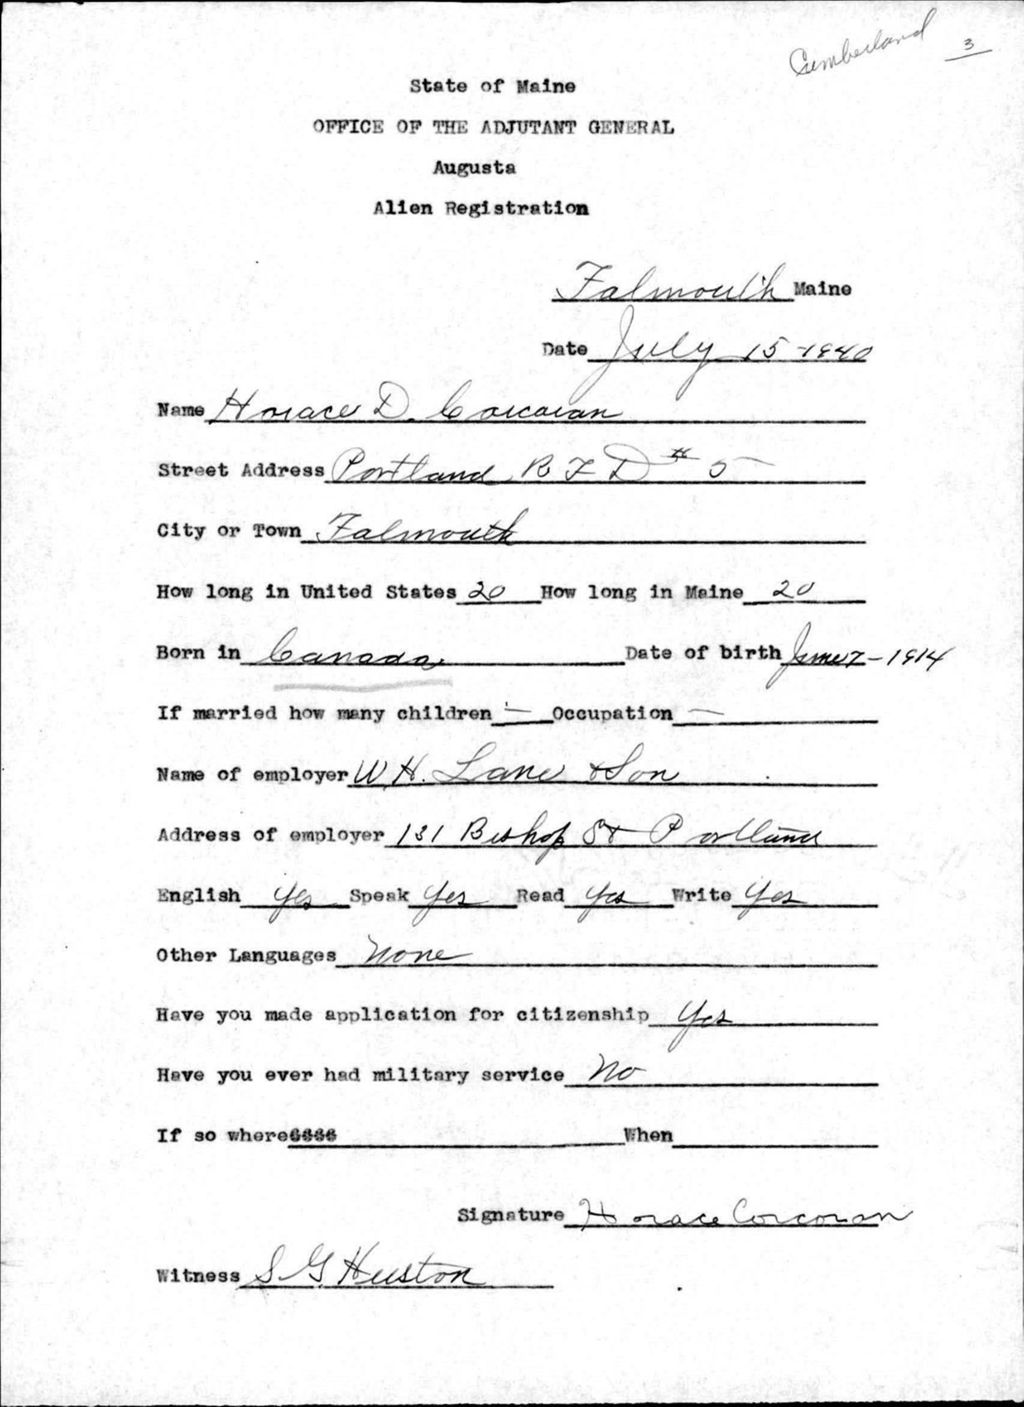 Cumberland 3
State of Maine
OFFICE OF THE ADJUTANT GENERAL
Augusta
Alien Registration
Falmouth Maine
Date July 15-1940
Name Horace D. Corcoran
Street Address Portland R F D # 5
City or Town Falmouth
How long in United States 20 How long in Maine 20
Born in Canada Date of birth June 7-1914
If married how many children — Occupation —
Name of employer W H. Lane & Son
Address of employer 131 Bishop St Portland
English Yes Speak Yes Read Yes Write Yes
Other Languages None
Have you made application for citizenship Yes
Have you ever had military service No
If so where When
Signature Horace Corcoran
Witness S G Huston